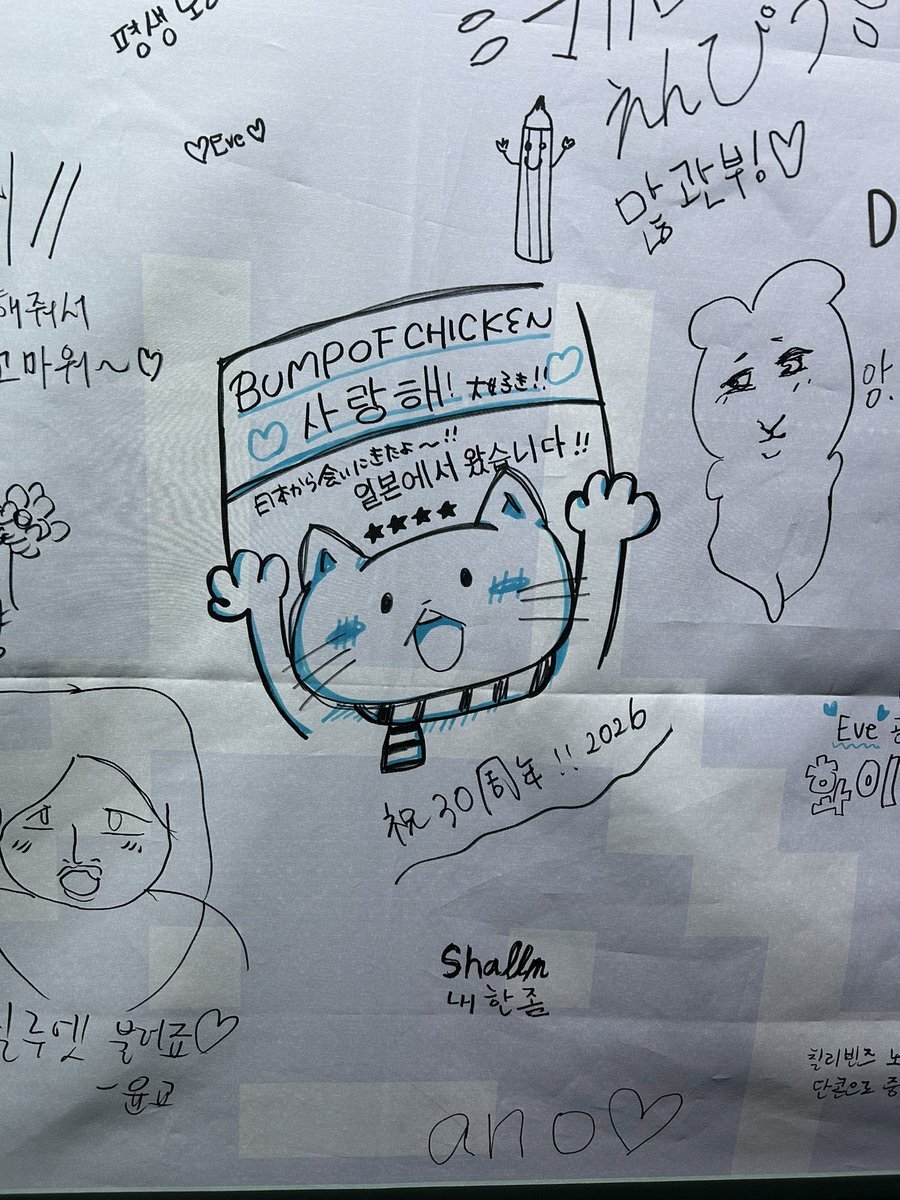 평생
えんぴつ
많관부!♡
♡Eve♡
해줘서
고마워~♡
BUMP OF CHICKEN
사랑해! 大好き!!
日本から会いにきたよ〜!!
일본에서 왔습니다!!
★★★★
앙.
祝30周年!! 2026
Eve
화이
Shallm
내한좀
실루엣 불러죠♡
-윤고
칠리빈즈
단콘으로
ano♡